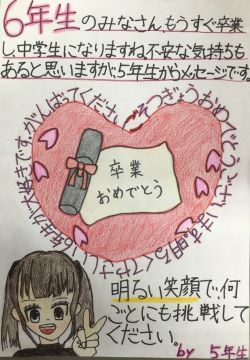 6年生のみなさん、もうすぐ卒業
し中学生になりますね。不安な気持ちも
あると思いますが5年生からメッセージです。
そつぎょうおめでとうございます。明るくてやさしい6年生が大好きです。がんばってください。
卒業
おめでとう
明るい笑顔で、何
ごとにも挑戦して
ください。
by 5年生